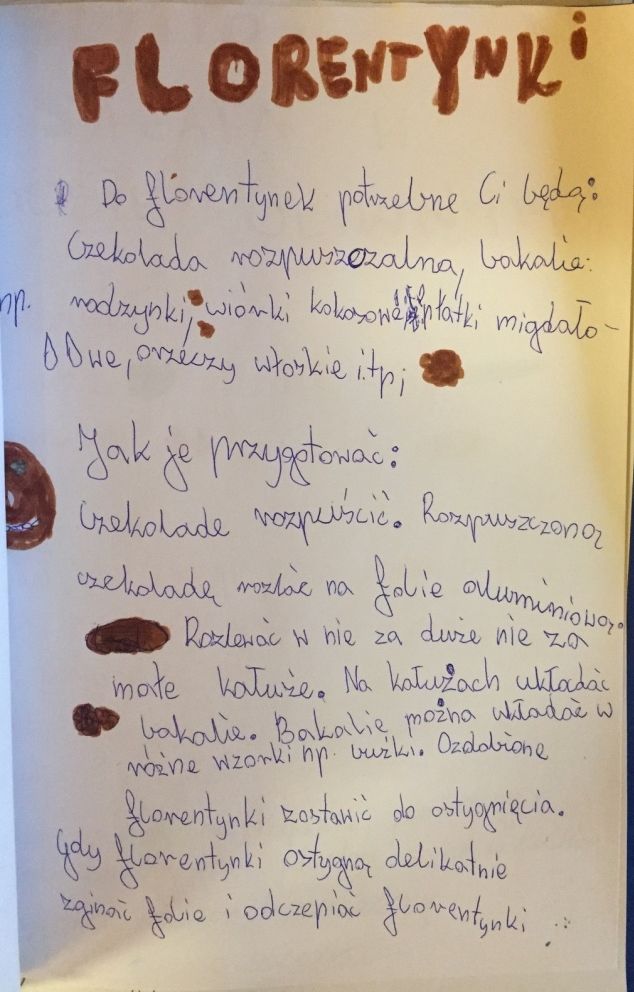 FLORENTYNKi
Do florentynek potrzebne Ci będą:
Czekolada rozpuszczalna, bakalie:
np. rodzynki, wiórki kokosowe, płatki migdało-
we, orzeczy włoskie i.t.p;
Jak je przygotować:
Czekolade rozpuścić. Rozpuszczoną
czekoladę rozlać na folie aluminiową.
Rozlewać w nie za duże nie za
małe kałuże. Na kałużach układać
bakalie. Bakalie można układać w
różne wzorki np. buźki. Ozdobione
florentynki zostawić do ostygnięcia.
Gdy florentynki ostygną delikatnie
zginać folie i odczepiać florentynki